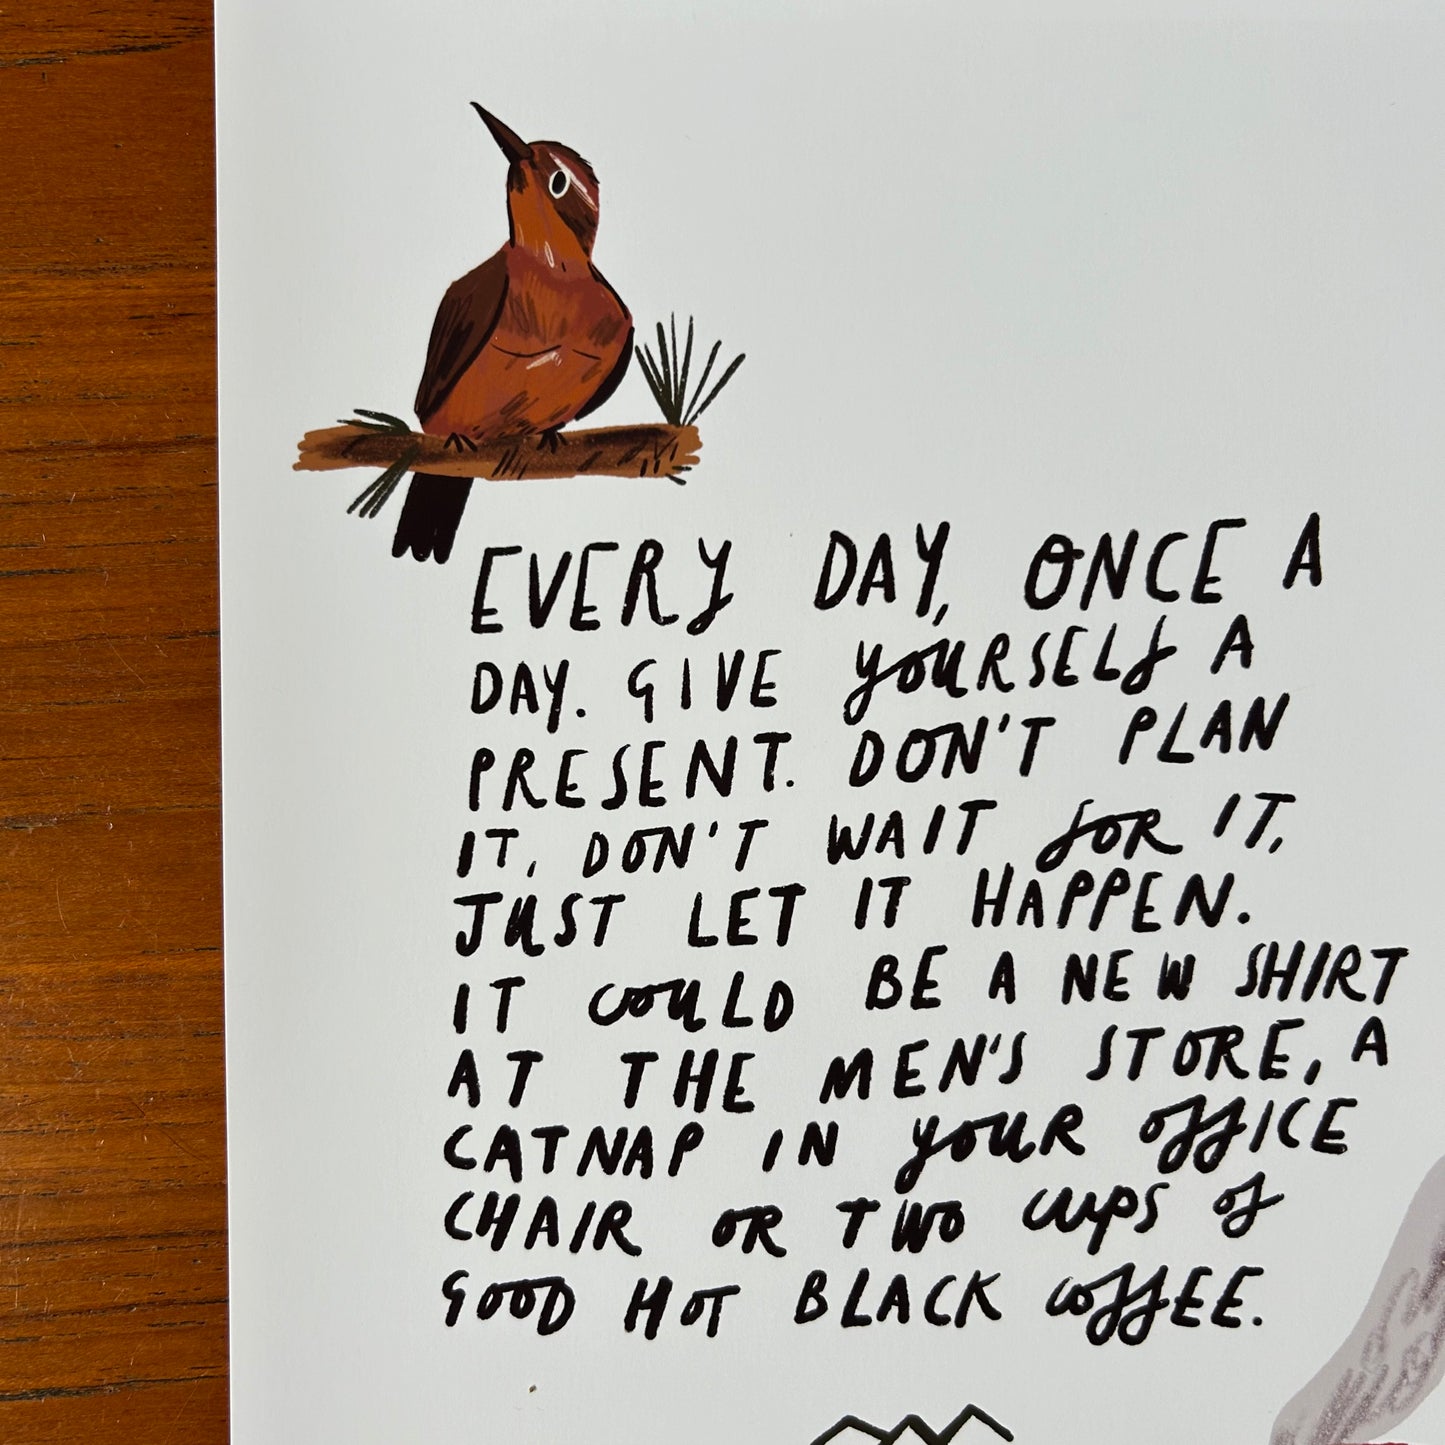 EVERY DAY, ONCE A
DAY. GIVE YOURSELF A
PRESENT. DON'T PLAN
IT, DON'T WAIT FOR IT,
JUST LET IT HAPPEN.
IT COULD BE A NEW SHIRT
AT THE MEN'S STORE, A
CATNAP IN YOUR OFFICE
CHAIR OR TWO CUPS OF
GOOD HOT BLACK COFFEE.